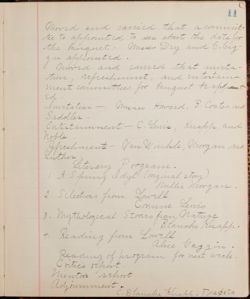 11
Moved and carried that a commit-
tee be appointed to see about the date for
the banquet. Misses Dry and C.
appointed.
Moved and carried that invita-
tion, refreshment, and entertain-
ment committees for banquet be appoint-
ed
Invitation — Misses Howard, Coates and
Entertainment — C. Lewis, Knapp, and
Refreshment — Van Winkle, Morgan and
Literary Program.
1. A Spring Idyl (original story)
Millie Morgan.
2. Selection from Lowell
Corinne Lewis
3. Mythological Stories from Nature
Blanche Knapp.
4. Reading from Lowell
Alice Gaggin.
Reading of program for next week.
Critic's report
Mentor's report
Adjournment.
Blanche